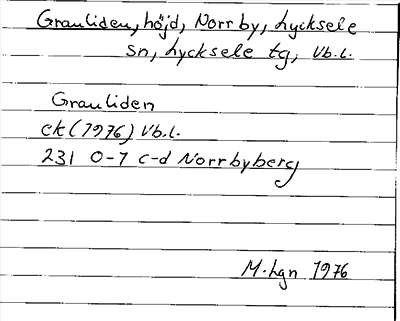 Granliden, höjd, Norrby, Lycksele
sn, Lycksele tg, Vb.l.
Granliden
ek (1976) Vb.l.
231 0-1 c-d Norrbyberg
M.Lgn 1976